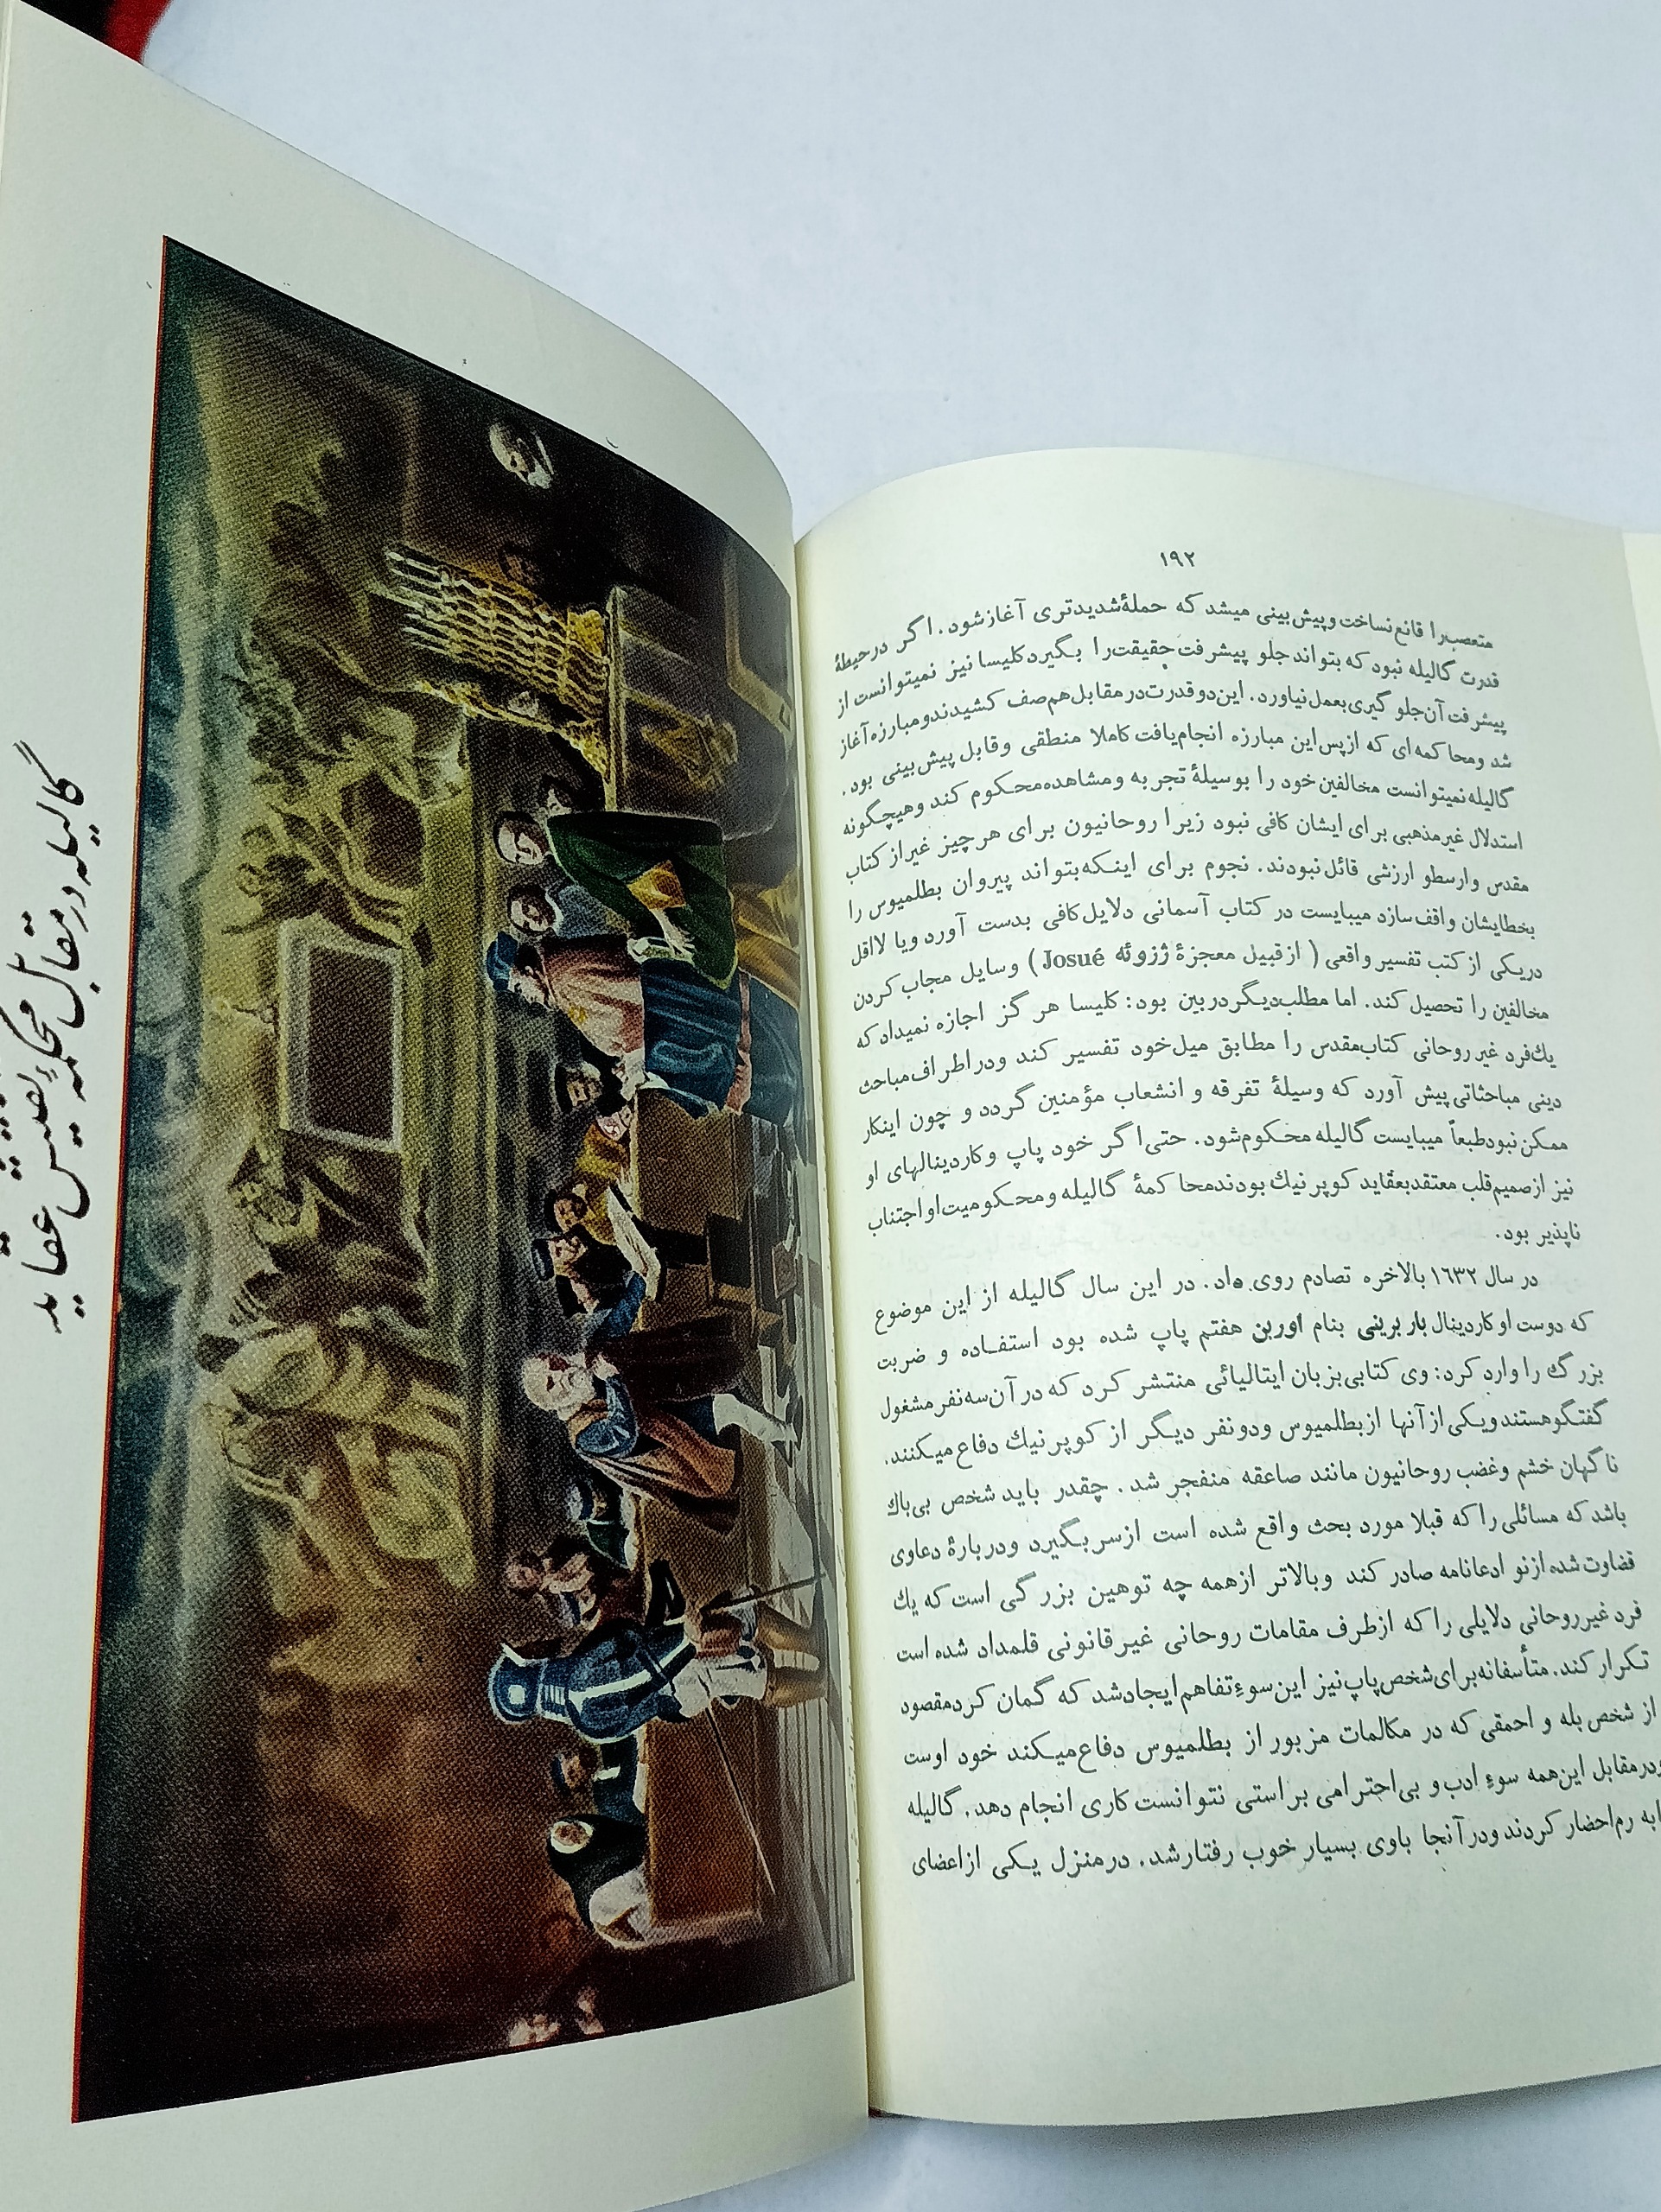 ۱۹۲
متعصب را قانع نساخت و پیش بینی میشد که حملهٔ شدیدتری آغاز شود. اگر در حیطهٔ
قدرت گالیله نبود که بتواند جلو پیشرفت حقیقت را بگیرد کلیسا نیز نمیتوانست از
پیشرفت آن جلوگیری بعمل نیاورد. این دو قدرت در مقابل هم صف کشیدند و مبارزه آغاز
شد و محاکمه‌ای که از پس این مبارزه انجام یافت کاملا منطقی و قابل پیش بینی بود.
گالیله نمیتوانست مخالفین خود را بوسیلهٔ تجربه و مشاهده محکوم کند و هیچگونه
استدلال غیر مذهبی برای ایشان کافی نبود زیرا روحانیون برای هر چیز غیر از کتاب
مقدس و ارسطو ارزشی قائل نبودند. نجوم برای اینکه بتواند پیروان بطلمیوس را
بخطایشان واقف سازد میبایست در کتاب آسمانی دلایل کافی بدست آورد ویا لااقل
دریکی از کتب تفسیر واقعی ( از قبیل معجزهٔ ژزوئه Josué ) وسایل مجاب کردن
مخالفین را تحصیل کند. اما مطلب دیگر در بین بود: کلیسا هرگز اجازه نمیداد که
یك فرد غیر روحانی کتاب مقدس را مطابق میل خود تفسیر کند و در اطراف مباحث
دینی مباحثاتی پیش آورد که وسیلهٔ تفرقه و انشعاب مؤمنین گردد و چون اینکار
ممکن نبود طبعاً میبایست گالیله محکوم شود. حتی اگر خود پاپ و کاردینالهای او
نیز از صمیم قلب معتقد بعقاید کوپرنیك بودند محاکمهٔ گالیله و محکومیت او اجتناب
ناپذیر بود.
در سال ۱۶۳۲ بالاخره تصادم روی داد. در این سال گالیله از این موضوع
که دوست او کاردینال باربرینی بنام اوربن هفتم پاپ شده بود استفاده و ضربت
بزرگ را وارد کرد: وی کتابی بزبان ایتالیائی منتشر کرد که در آن سه نفر مشغول
گفتگو هستند و یکی از آنها از بطلمیوس ودو نفر دیگر از کوپرنیك دفاع میکنند.
ناگهان خشم و غضب روحانیون مانند صاعقه منفجر شد. چقدر باید شخص بی‌باك
باشد که مسائلی را که قبلا مورد بحث واقع شده است از سر بگیرد و دربارهٔ دعاوی
قضاوت شده از نو ادعانامه صادر کند و بالاتر از همه چه توهین بزرگی است که یك
فرد غیر روحانی دلایلی را که از طرف مقامات روحانی غیر قانونی قلمداد شده است
تکرار کند. متأسفانه برای شخص پاپ نیز این سوءِ تفاهم ایجاد شد که گمان کرد مقصود
از شخص بله و احمقی که در مکالمات مزبور از بطلمیوس دفاع میکند خود اوست
ودر مقابل این همه سوءِ ادب و بی احترامی براستی نتوانست کاری انجام دهد. گالیله
را به رم احضار کردند ودر آنجا باوی بسیار خوب رفتار شد. در منزل یکی از اعضای
گالیله در مقابل محکمهٔ تفتیش عقاید